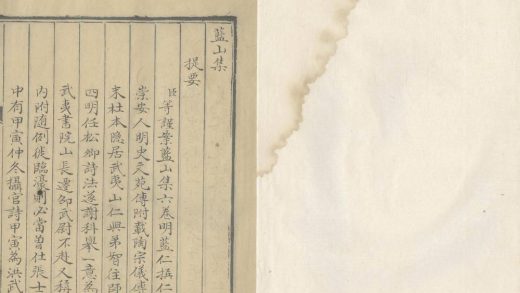 藍山集
提要
臣等謹案藍山集六卷明藍仁撰仁
崇安人明史文苑傳附載陶宗儀傳
末杜本隐居武夷山仁與弟智往師
四明任松鄉詩法遂謝科舉一意為
武夷書院山長遷邵武尉不赴又稱
内附随例徙臨濠則必當曾仕張士
中有甲寅仲冬攝官詩甲寅為洪武